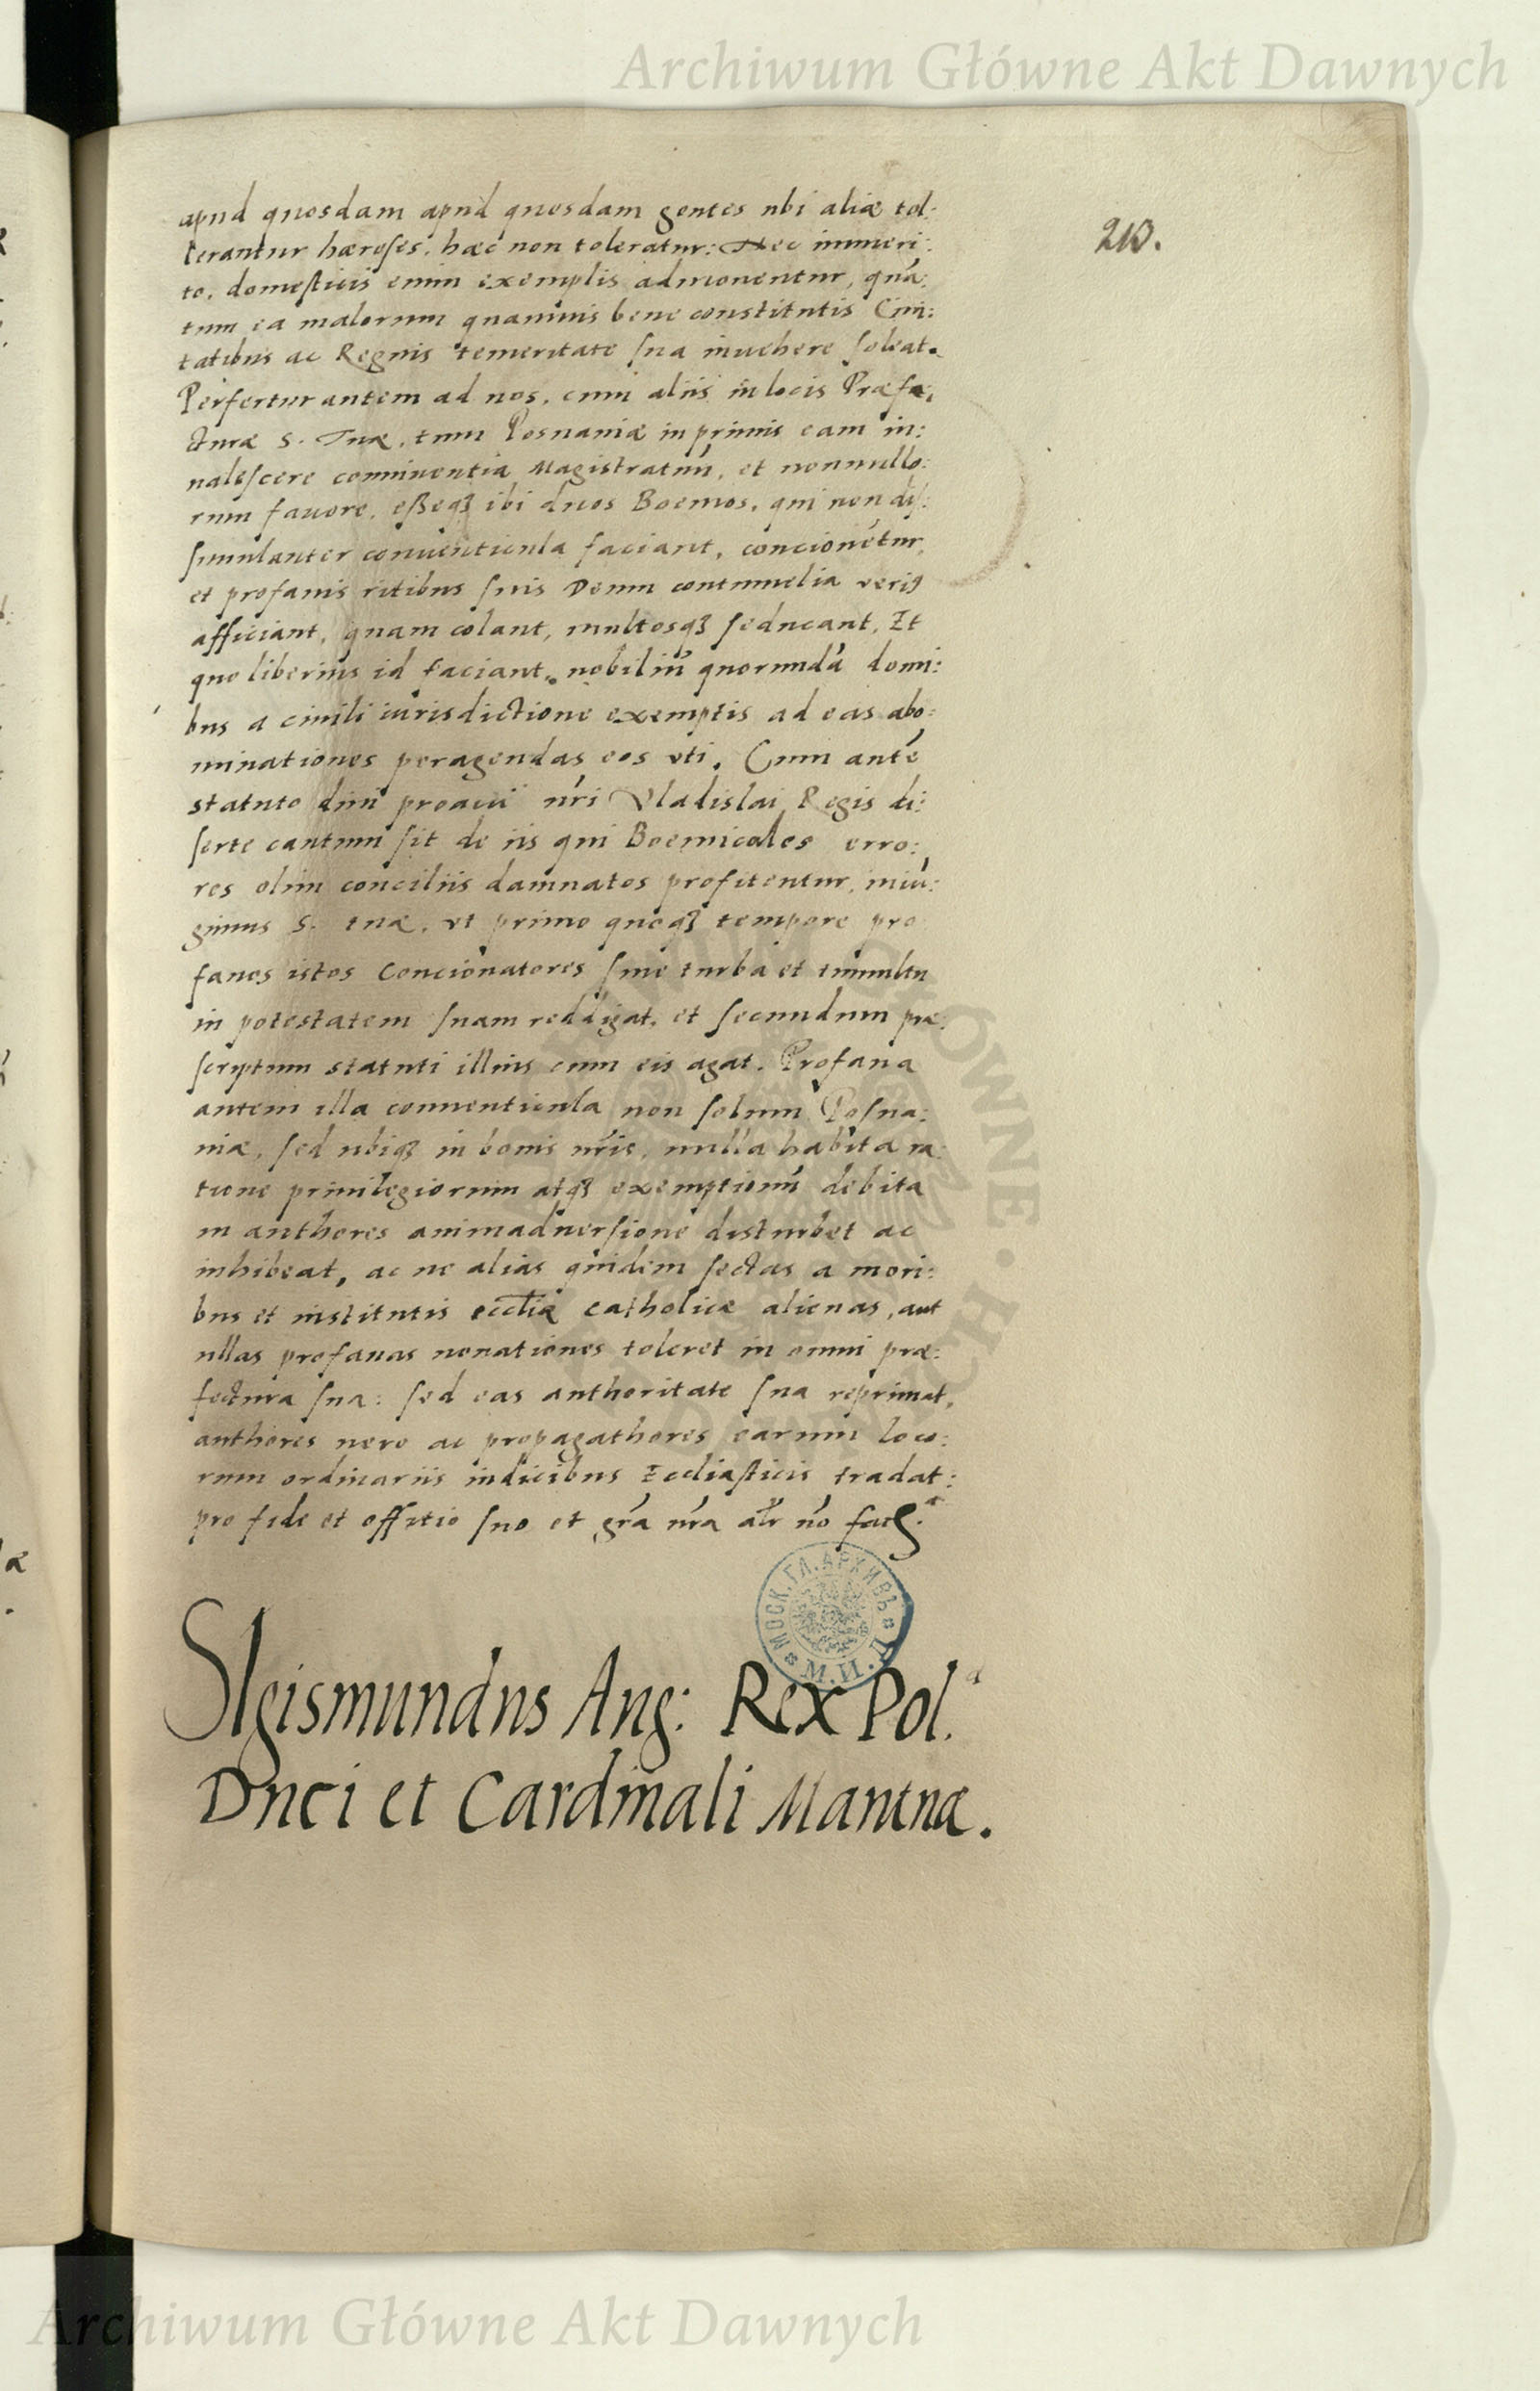 Archiwum Główne Akt Dawnych
213.
apud quosdam apud quosdam gentes ubi aliæ tol:
lerantur hæreses, hæc non toleratur: Nec immeri:
to, domesticis enim exemplis admonentur, quā:
tum ea malorum quamuis bene constitutis Ciui:
tatibus ac Regnis temeritate sua inuehere soleat.
Perfertur antem ad nos, cum aliis in locis Præfe:
cturæ S. Tuæ, tum Posnaniæ in primis eam in:
ualescere conniuentia Magistratuū, et nonnullo:
rum fauore, eßeqȝ ibi duos Boemos, qui non dis:
simulanter conuenticula faciant, concionētur,
et profanis ritibus suis Deum contumelia veriꝯ
afficiant, quam colant, multosqȝ seducant, Et
quo liberius id faciant, nobiliū quorundā domi:
bus a ciuili iurisdictione exemptis ad eas abo:
minationes peragendas eos vti. Cum antē
statuto diui proaui nr̄i Vladislai Regis di:
serte cautum sit de iis qui Boemicales erro:
res olim conciliis damnatos profitentur, iniū:
gimus S. tuæ, vt primo quoqȝ tempore pro
fanos istos Concionatores sine turba et tumultu
in potestatem suam reddigat, et secundum præ
scriptum statuti illius cum eis agat. Profana
autem illa conuenticula non solum Posna:
niæ, sed ubiqȝ in bonis nr̄is, nulla habita ra:
tione priuilegiorum atqȝ exemptionū debita
in authores animaduersione disturbet ac
inhibeat, ac ne alias quidem sectas a mori:
bus et institutis eccl̄iæ catholicæ alienas, aut
ullas profanas nouationes toleret in omni præ:
fectura sua: sed eas authoritate sua reprimat,
authores uero ac propagathores earum loco:
rum ordinariis iudicibus Eccliasticis tradat:
pro fide et offitio suo et gr̄a nr̄a alr̄ nō
MOCK. ГЛ. АРХИВЪ
М.И.Д
SIgismundus Aug: Rex Pol.ᵃ
Duci et Cardinali Mantuæ.
Archiwum Główne Akt Dawnych